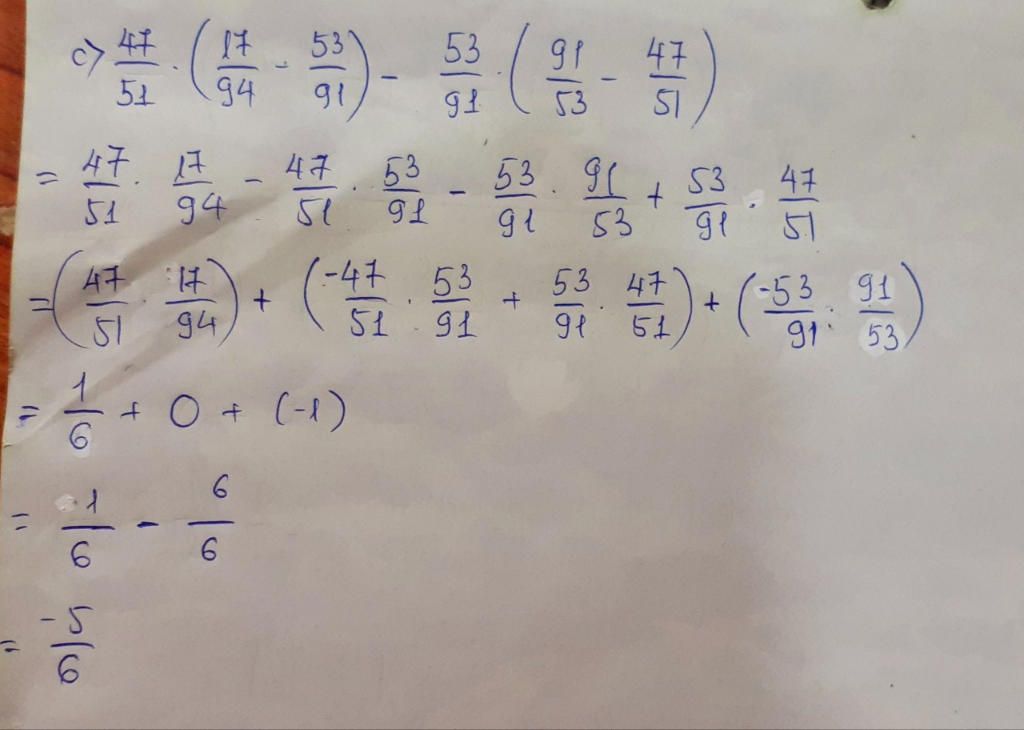 c) 47/51 · (17/94 - 53/91) - 53/91 · (91/53 - 47/51)
= 47/51 · 17/94 - 47/51 · 53/91 - 53/91 · 91/53 + 53/91 · 47/51
= (47/51 · 17/94) + (-47/51 · 53/91 + 53/91 · 47/51) + (-53/91 · 91/53)
= 1/6 + 0 + (-1)
= 1/6 - 6/6
= -5/6